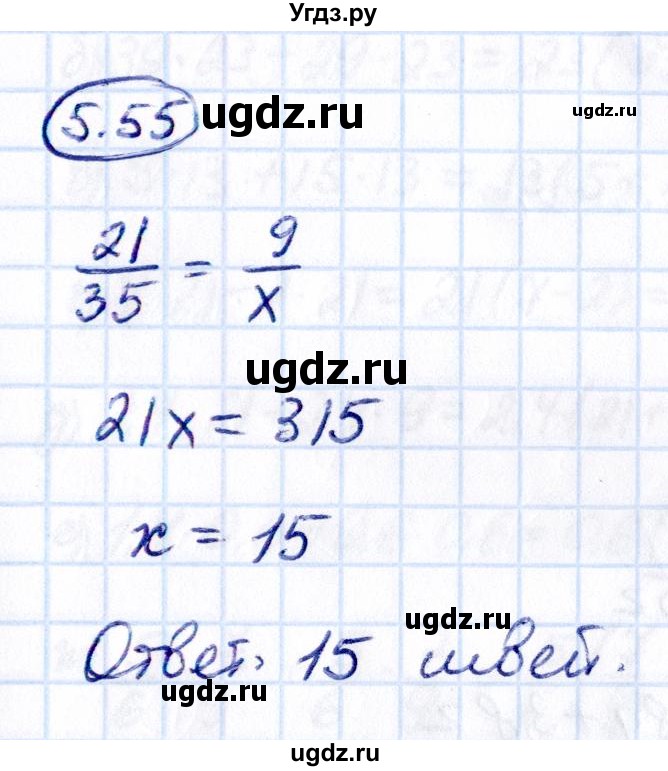 Угдз.ру
5.55 ugdz.ru
ugdz.ru
21/35 = 9/x
ugdz.ru
21x = 315
x = 15
ugdz.ru
Ответ: 15 швей.
ugdz.ru
ugdz.ru